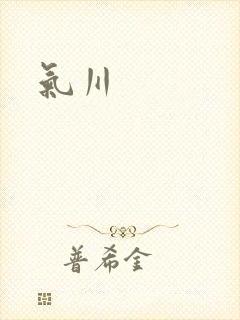 氣川
普希金